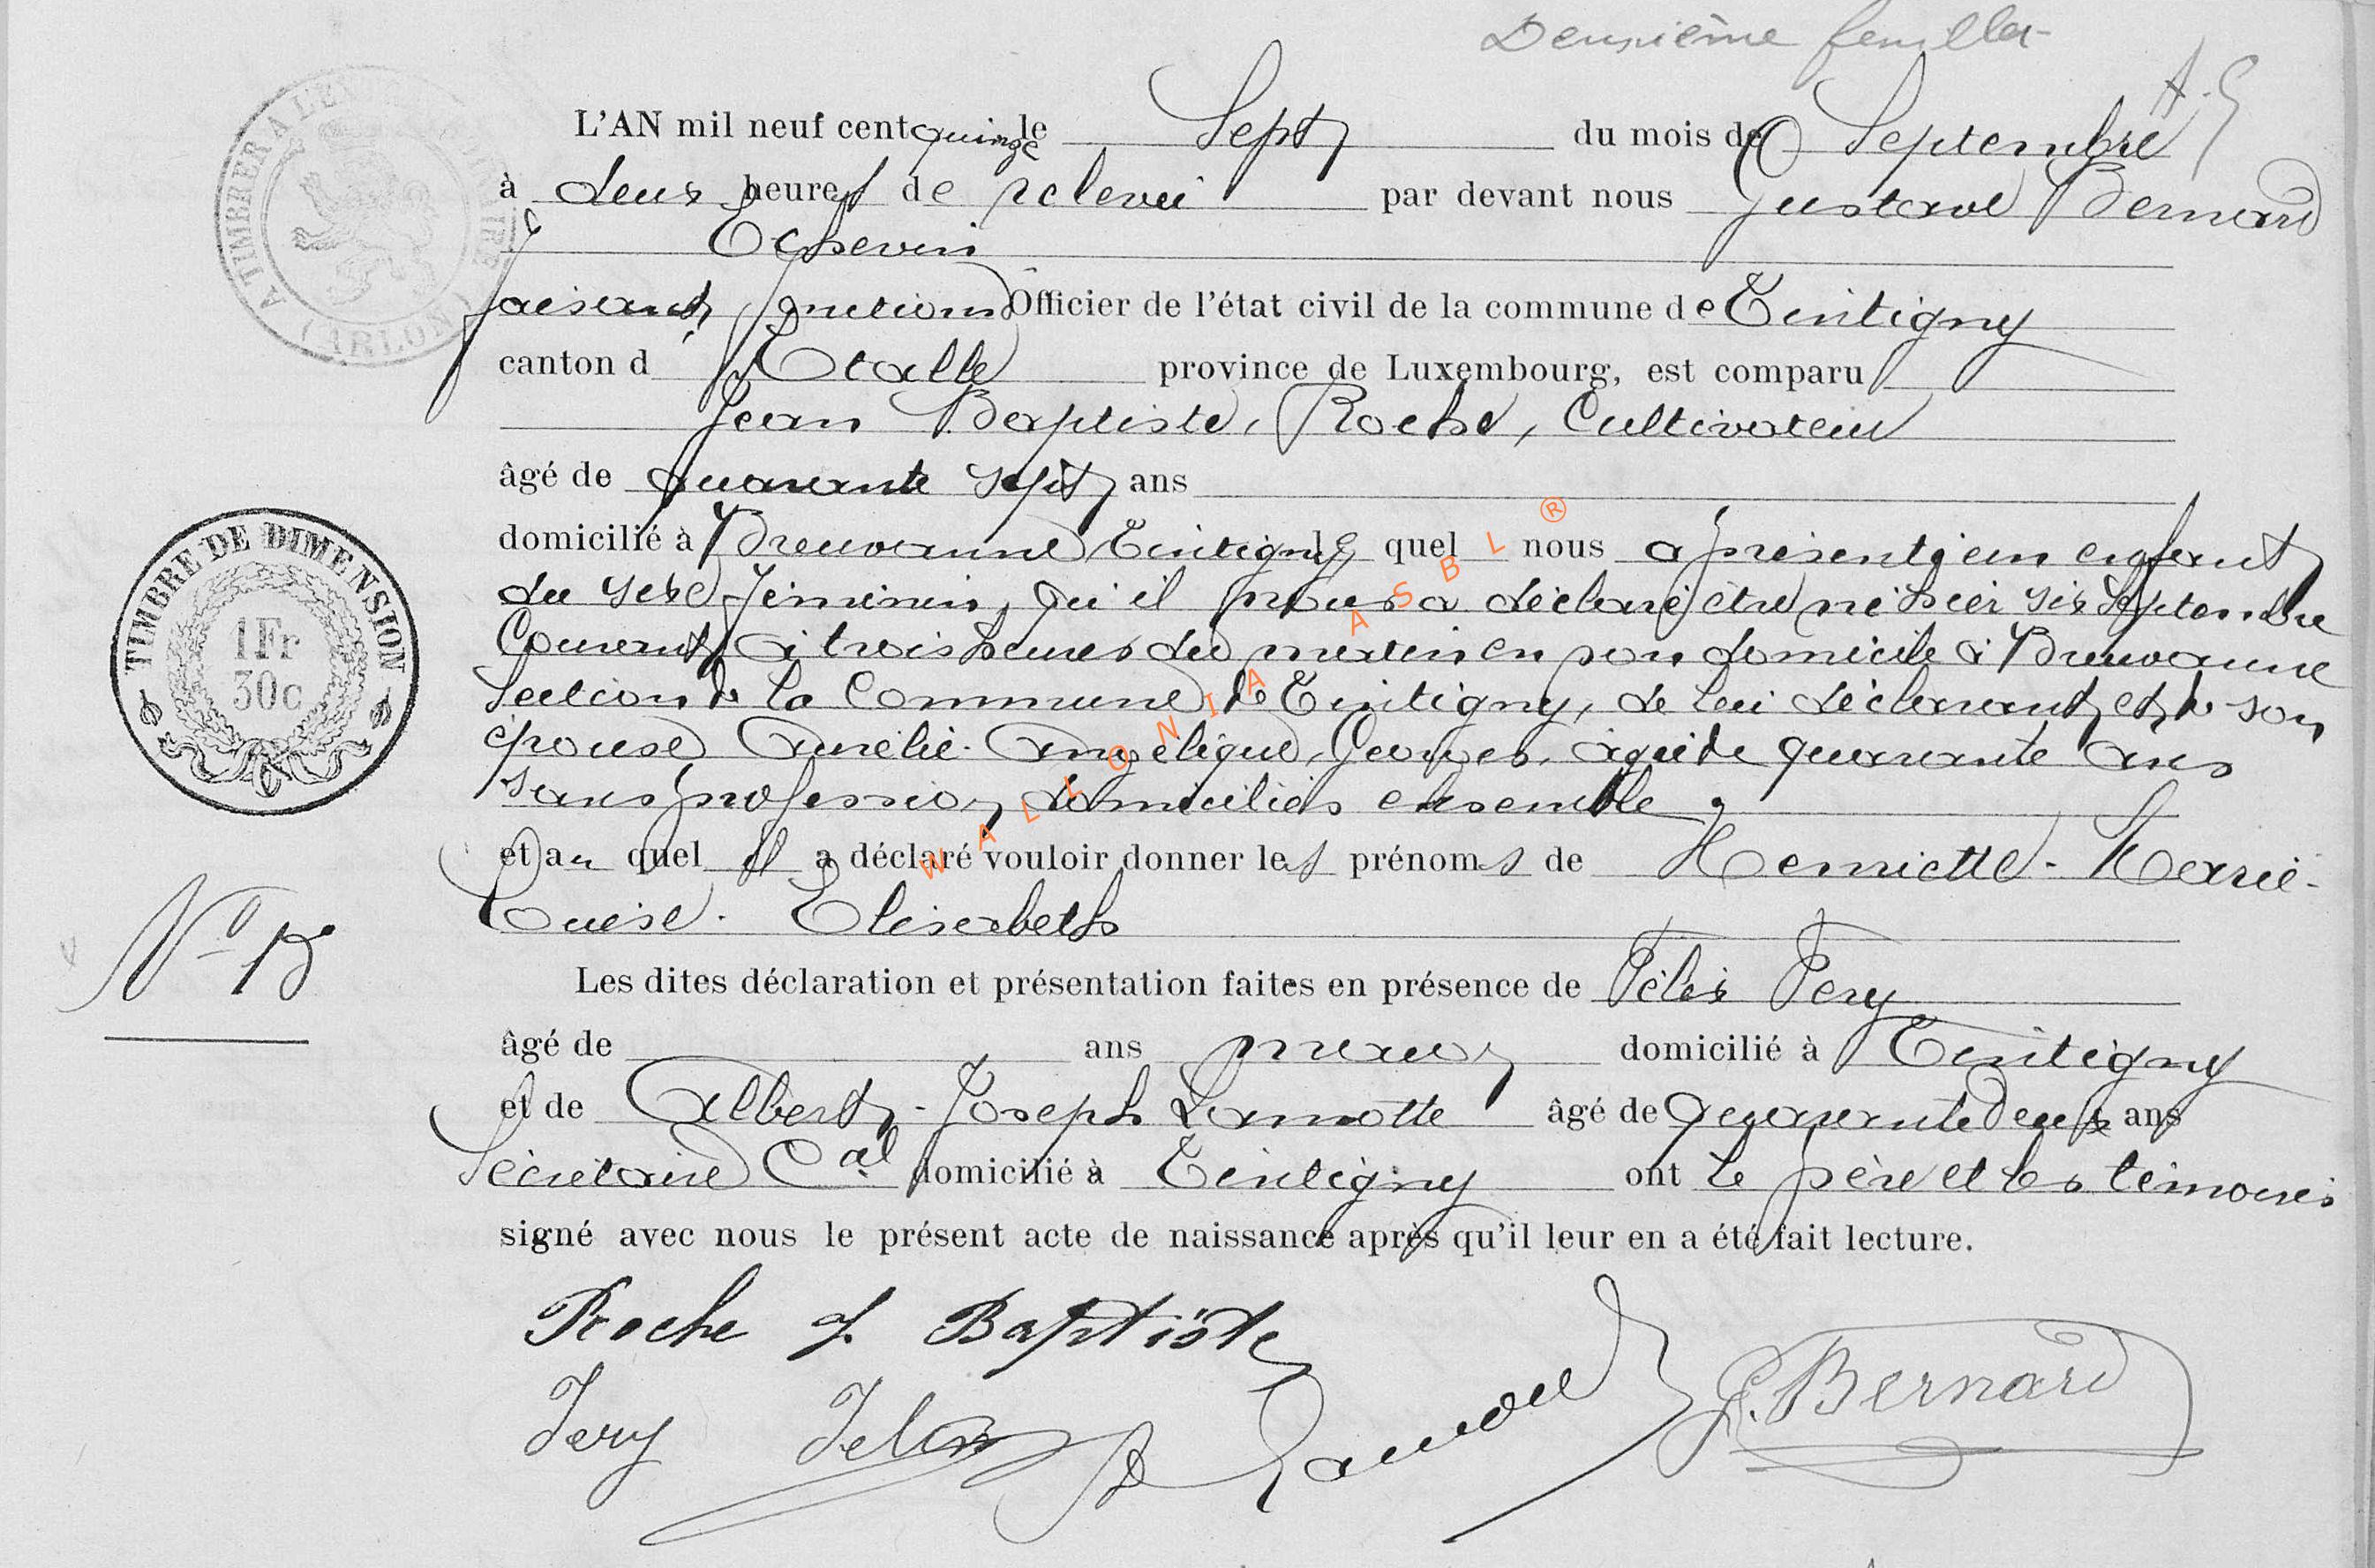 Deuxième feuillet
A. G
L'AN mil neuf cent quinze le Sept du mois de Septembre
à deux heures de relevée par devant nous Gustave Bernard
Echevin
faisant fonctions Officier de l'état civil de la commune de Tintigny
canton d'Etalle province de Luxembourg, est comparu
Jean Baptiste, Roche, Cultivateur
âgé de quarante sept ans
domicilié à Breuvanne Tintigny le quel nous a présenté un enfant
du sexe féminin, qu'il nous a déclaré être né hier six Septembre
Courant à trois heures du matin en son domicile à Breuvanne
Section de la Commune de Tintigny, de lui déclarant et de son
épouse Aurélie-Angélique, Georges, agée de quarante ans
sans profession, domiciliés ensemble,
et au quel il a déclaré vouloir donner les prénoms de Henriette-Marie-
Louise-Elisabeth
Les dites déclaration et présentation faites en présence de Félix Fery
âgé de ans domicilié à Tintigny
et de Albert-Joseph Lamotte âgé de quarante deux ans
Secrétaire Cal domicilié à Tintigny ont le père et les témoins
signé avec nous le présent acte de naissance après qu'il leur en a été fait lecture.
Roche J Baptiste
Fery Félix A Lamotte G. Bernard
A TIMBRER A L'EXTRAORDINAIRE
(ARLON)
TIMBRE DE DIMENSION
1Fr
30c
No 15
WALLONIA ASBL ®